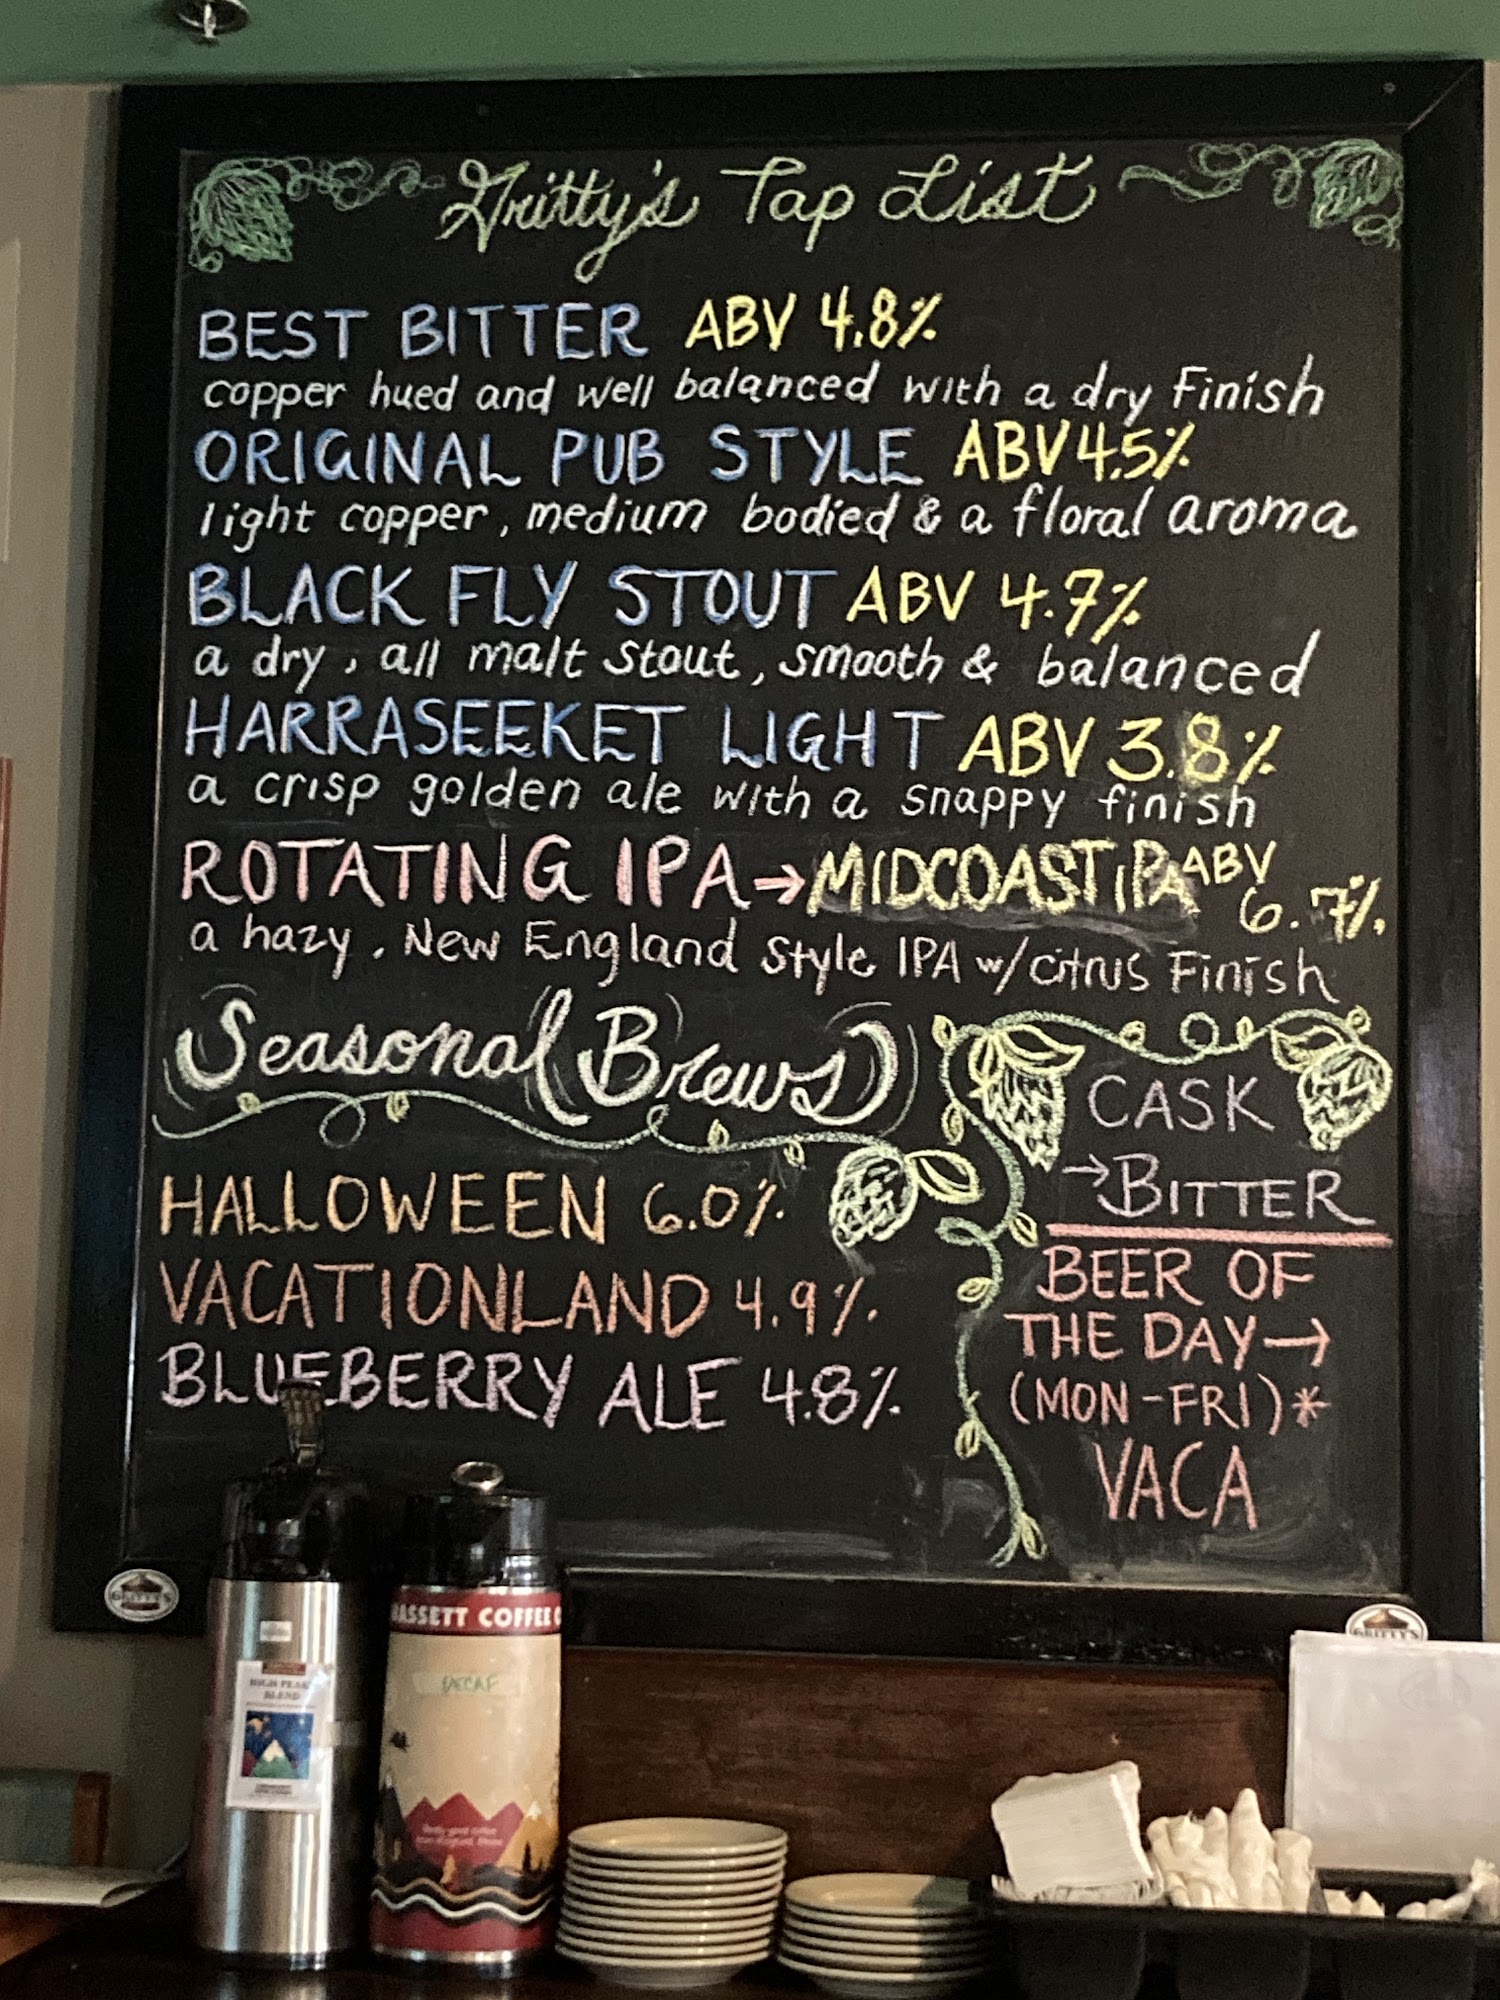 Gritty's Tap List
BEST BITTER ABV 4.8%
copper hued and well balanced with a dry Finish
ORIGINAL PUB STYLE ABV 4.5%
light copper, medium bodied & a floral aroma
BLACK FLY STOUT ABV 4.7%
a dry, all malt stout, smooth & balanced
HARRASEEKET LIGHT ABV 3.8%
a crisp golden ale with a snappy finish
ROTATING IPA→MIDCOAST IPA ABV 6.7%
a hazy, New England Style IPA w/citrus Finish
Seasonal Brews
HALLOWEEN 6.0%
VACATIONLAND 4.9%
BLUEBERRY ALE 4.8%
CASK
→BITTER
BEER OF
THE DAY→
(MON-FRI)*
VACA
GRITTY'S
GRITTY'S
HIGH PEAKS
BLEND
ASSETT COFFEE C
DECAF